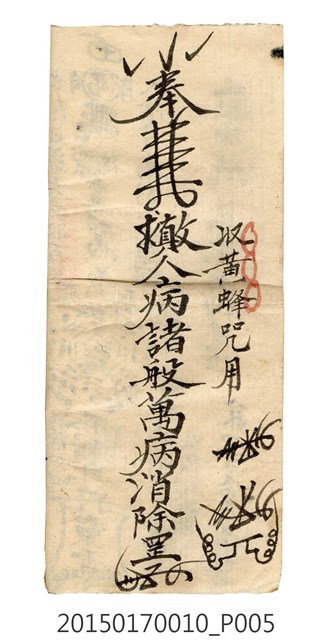 奉
撒人病諸般萬病消除罡
収黃蜂咒用
20150170010_P005